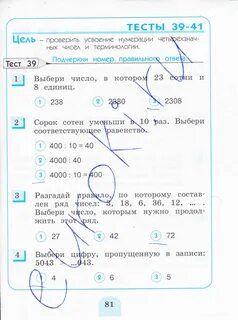 ТЕСТЫ 39-41
Цель – проверить усвоение нумерации четырехзнач-
ных чисел и терминологии.
Подчеркни номер правильного ответа.
Тест 39
1 Выбери число, в котором 23 сотни и
8 единиц.
1 238 2 2380 3 2308
2 Сорок сотен уменьши в 10 раз. Выбери
соответствующее равенство.
1 4000 : 10 = 40
2 4000 : 40
3 4000 : 10 = 400
3 Разгадай правило, по которому состав-
лен ряд чисел: 3, 18, 6, 36, 12, ... .
Выбери число, которым нужно продол-
жить этот ряд.
1 27 2 42 3 72
4 Выбери цифру, пропущенную в записи:
5043 ... 043.
1 4 2 6 3 5
81